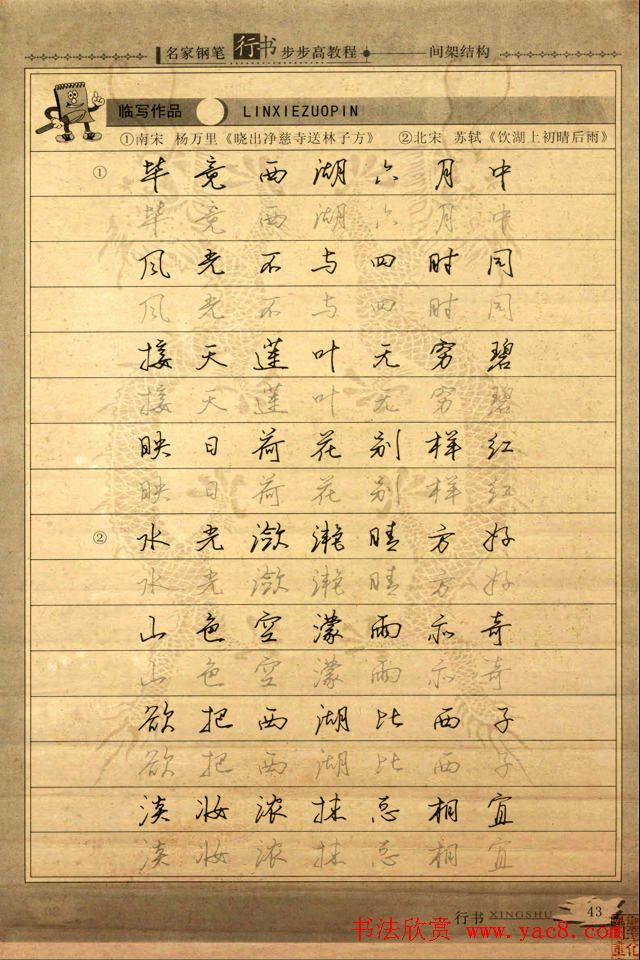 名家钢笔行书步步高教程 间架结构
临写作品 LINXIEZUOPIN
①南宋 杨万里《晓出净慈寺送林子方》 ②北宋 苏轼《饮湖上初晴后雨》
① 毕竟西湖六月中
毕竟西湖六月中
风光不与四时同
风光不与四时同
接天莲叶无穷碧
接天莲叶无穷碧
映日荷花别样红
映日荷花别样红
② 水光潋滟晴方好
水光潋滟晴方好
山色空濛雨亦奇
山色空濛雨亦奇
欲把西湖比西子
欲把西湖比西子
淡妆浓抹总相宜
淡妆浓抹总相宜
行书 XINGSHU 43
书法欣赏 www.yac8.com